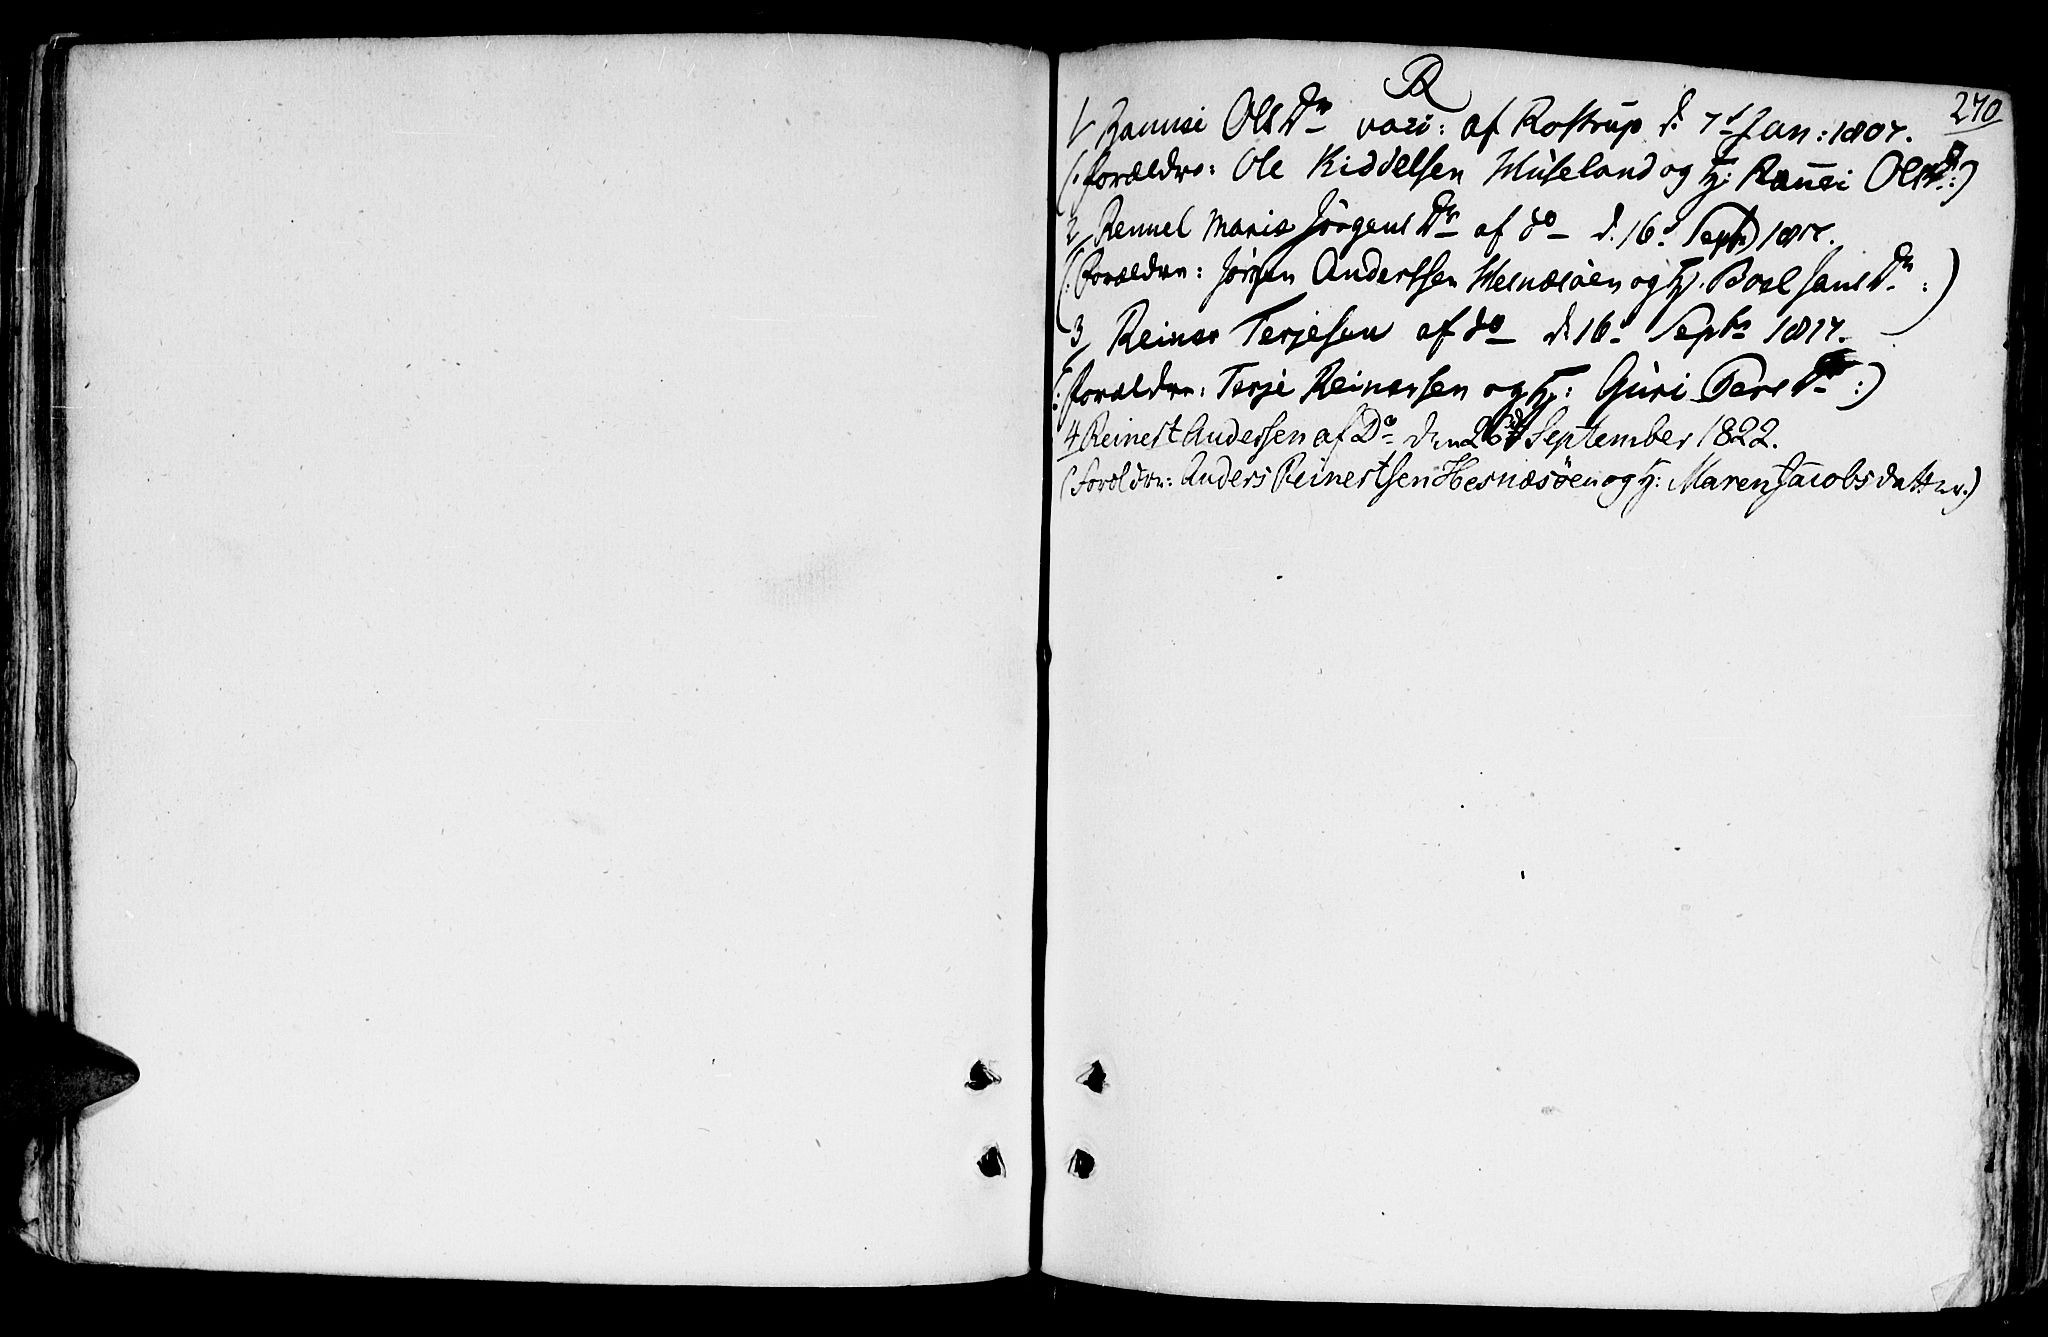 R
270
1/ Rannei Ols Dr vaci: af Rostrup d. 7d Jan: 1807.
(: forældre: Ole Kiddelsen Museland og H: Rannei Ols Dr :)
2/ Rennel Maria Jörgens Dr af do d. 16d Septb 1817.
(: forældre: Jörgen Anderssen Hesnæsöen og H: Boel Jans Dr :)
3/ Reiner Terjesen af do d. 16d Septbr 1817.
(: forældre: Terje Reinersen og H: Guri Pers Dr :)
4 Reinert Andersen af Do den 26d September 1822.
(forældre: Anders Reinertsen Hesnæsöen og H: Maren Jacobsdatter.)